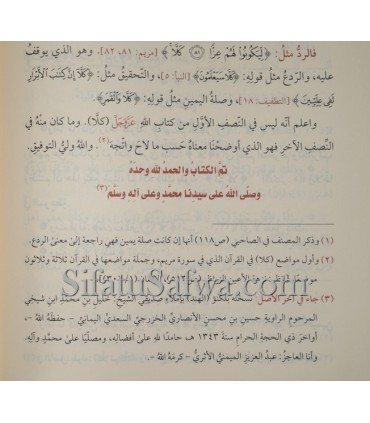 فالردُّ مثلُ: ﴿لِيَكُونُوا لَهُمْ عِزًّا ۝ كَلَّا﴾ [مريم: ٨١، ٨٢]. وهو الذي يوقفُ
عليه، والردعُ مثلُ قولِهِ: ﴿كَلَّا سَيَعْلَمُونَ﴾ [النبأ: ٥]، والتَّحقيقُ مثلُ: ﴿كَلَّا إِنَّ كِتَابَ الْأَبْرَارِ
لَفِي عِلِّيِّينَ﴾ [المطففين: ١٨]، وصلةُ اليمينِ مثلُ قولِهِ: ﴿كَلَّا وَالْقَمَرِ﴾.
واعلم أنَّه ليس في النّصفِ الأوَّلِ من كتابِ اللهِ عَزَّوَجَلَّ (كلّا). وما كان منْهُ في
النّصفِ الآخرِ فهو الذي أوضحْنَا معناهُ حَسب ما لاحَ واتَّجه(٢). واللهُ وليُّ التوفيقِ.
تمَّ الكتابُ والحمدُ للهِ وحدَهُ
وصلّى اللهُ على سيدنا محمَّدٍ وعلى آلِهِ وسلَّم(٣)
(١) وذكر المصنف في الصاحبي (ص١١٨) أنها إن كانت صلة يمين فهي راجعة إلى معنى الردع.
(٢) وأول مواضع (كلا) في القرآن الذي في سورة مريم، وجملة مواضعها في القرآن ثلاثة وثلاثون
(٣) جاء في آخر الأصل: نسخته بلكنؤ (الهند) بإملاء صديقي الشيخ: خليل بن محمَّد ابن شيخي
المرحوم الراوية حسين بن محسن الأنصاريِّ الخزرجي السعديِّ اليمانيِّ - حفظهُ اللهُ -،
أواخرَ ذي الحجة الحرام سنة ١٣٤٣ هـ، حامدًا للهِ على أفضالِه، ومصلّيًا على محمَّدٍ وآلِه.
وأنا العاجزُ: عبدُ العزيز الميمنيُّ الأثريُّ - كرمَهُ اللهُ -.
SifatuSafwa.com